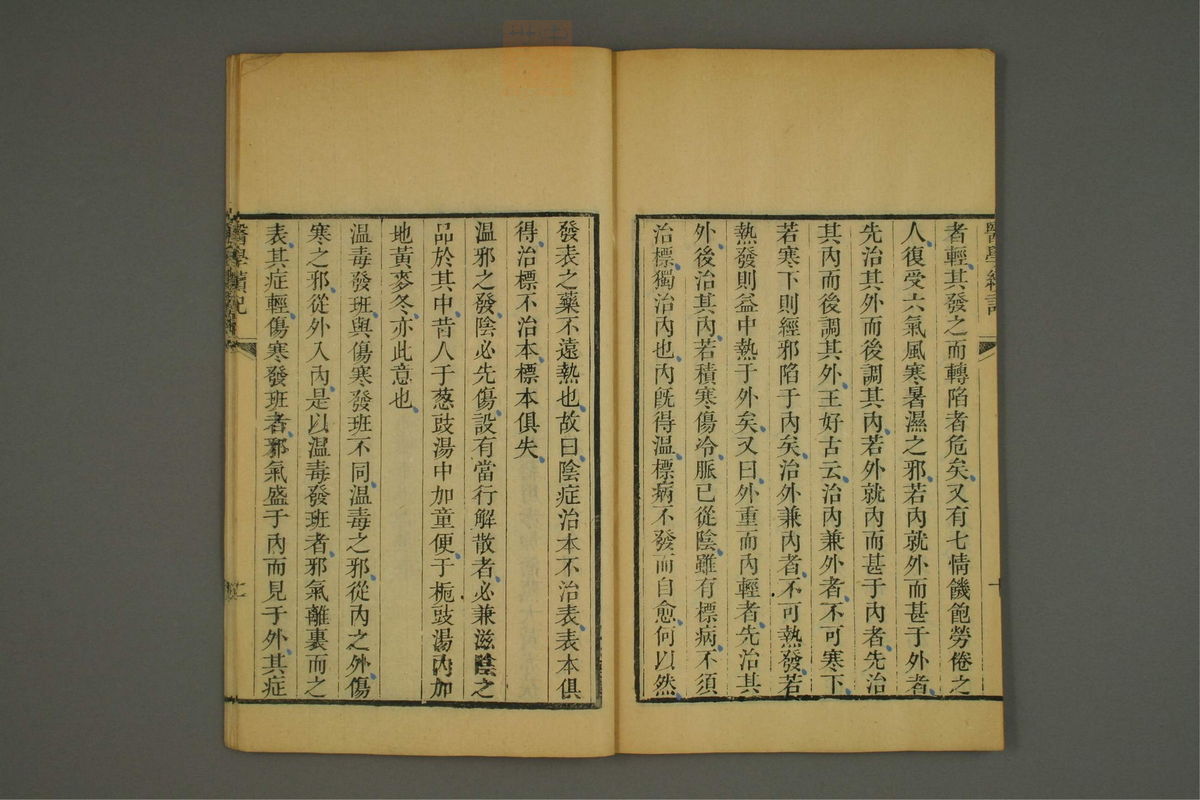 者輕其發之而轉陷者危矣又有七情饑飽勞倦之
人復受六氣風寒暑濕之邪若內就外而甚于外者
先治其外而後調其內若外就內而甚于內者先治
其內而後調其外王好古云治內兼外者不可寒下
若寒下則經邪陷于內矣治外兼內者不可熱發若
熱發則益中熱于外矣又曰外重而內輕者先治其
外後治其內若積寒傷冷脈已從陰雖有標病不須
治標獨治內也內旣得温標病不發而自愈何以然
發表之藥不遠熱也故曰陰症治本不治表表本俱
得治標不治本標本俱失
温邪之發陰必先傷設有當行解散者必兼滋陰之
品於其中昔人于葱豉湯中加童便于梔豉湯內加
地黃麥冬亦此意也
温毒發班與傷寒發班不同温毒之邪從內之外傷
寒之邪從外入內是以温毒發班者邪氣離裏而之
表其症輕傷寒發班者邪氣盛于內而見于外其症
醫學讀記